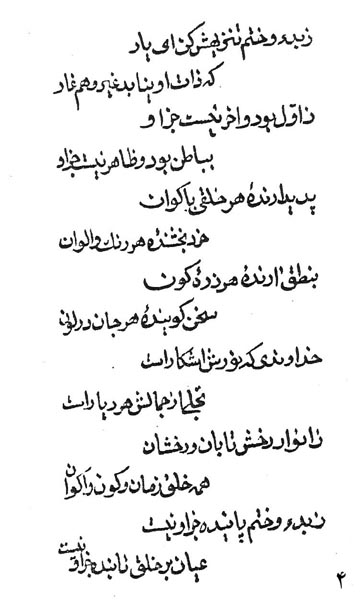 ز بدء و ختم تنزیهش کن ای یار
که ذات او نیابد غیر وهم تار
ز اوّل بود و آخر نیست جز او
بباطن بود و ظاهر نیست جز او
پدیدارندهٔ هر خلقی باکوان
خرد بخشندهٔ هر رنگ و الوان
بنطق آرندهٔ هر ذرهٔ کون
سخن گویندهٔ هر جان در
خداوندی که نورش آشکار است
تجلیها ز جمالش هر دیار است
ز انوار رخش تابان و رخشان
همه خلق زمان و کون و اکوان
ز بدء و ختم پاینده جز او نیست
عیان بر خلق تابنده جز او نیست
۴